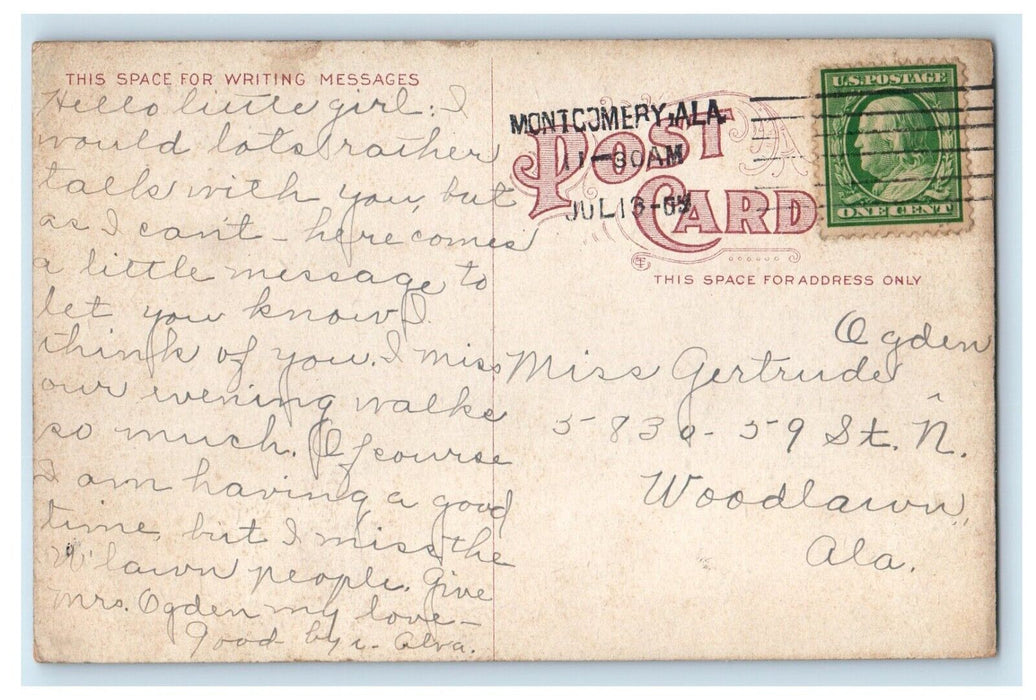 THIS SPACE FOR WRITING MESSAGES
Hello little girl: I
would lots rather
talk with you, but
as I can't - here comes
a little message to
let you know I
think of you. I miss
our evening walks
so much. Of course
I am having a good
time, but I miss the
W'lawn people. Give
Mrs. Ogden my love -
Good by e. Alva.
MONTGOMERY, ALA.
11-30AM
JUL 13
POST CARD
U.S. POSTAGE
ONE CENT
THIS SPACE FOR ADDRESS ONLY
Ogden
Miss Gertrude ^
5830- 59 St. N.
Woodlawn,
Ala.